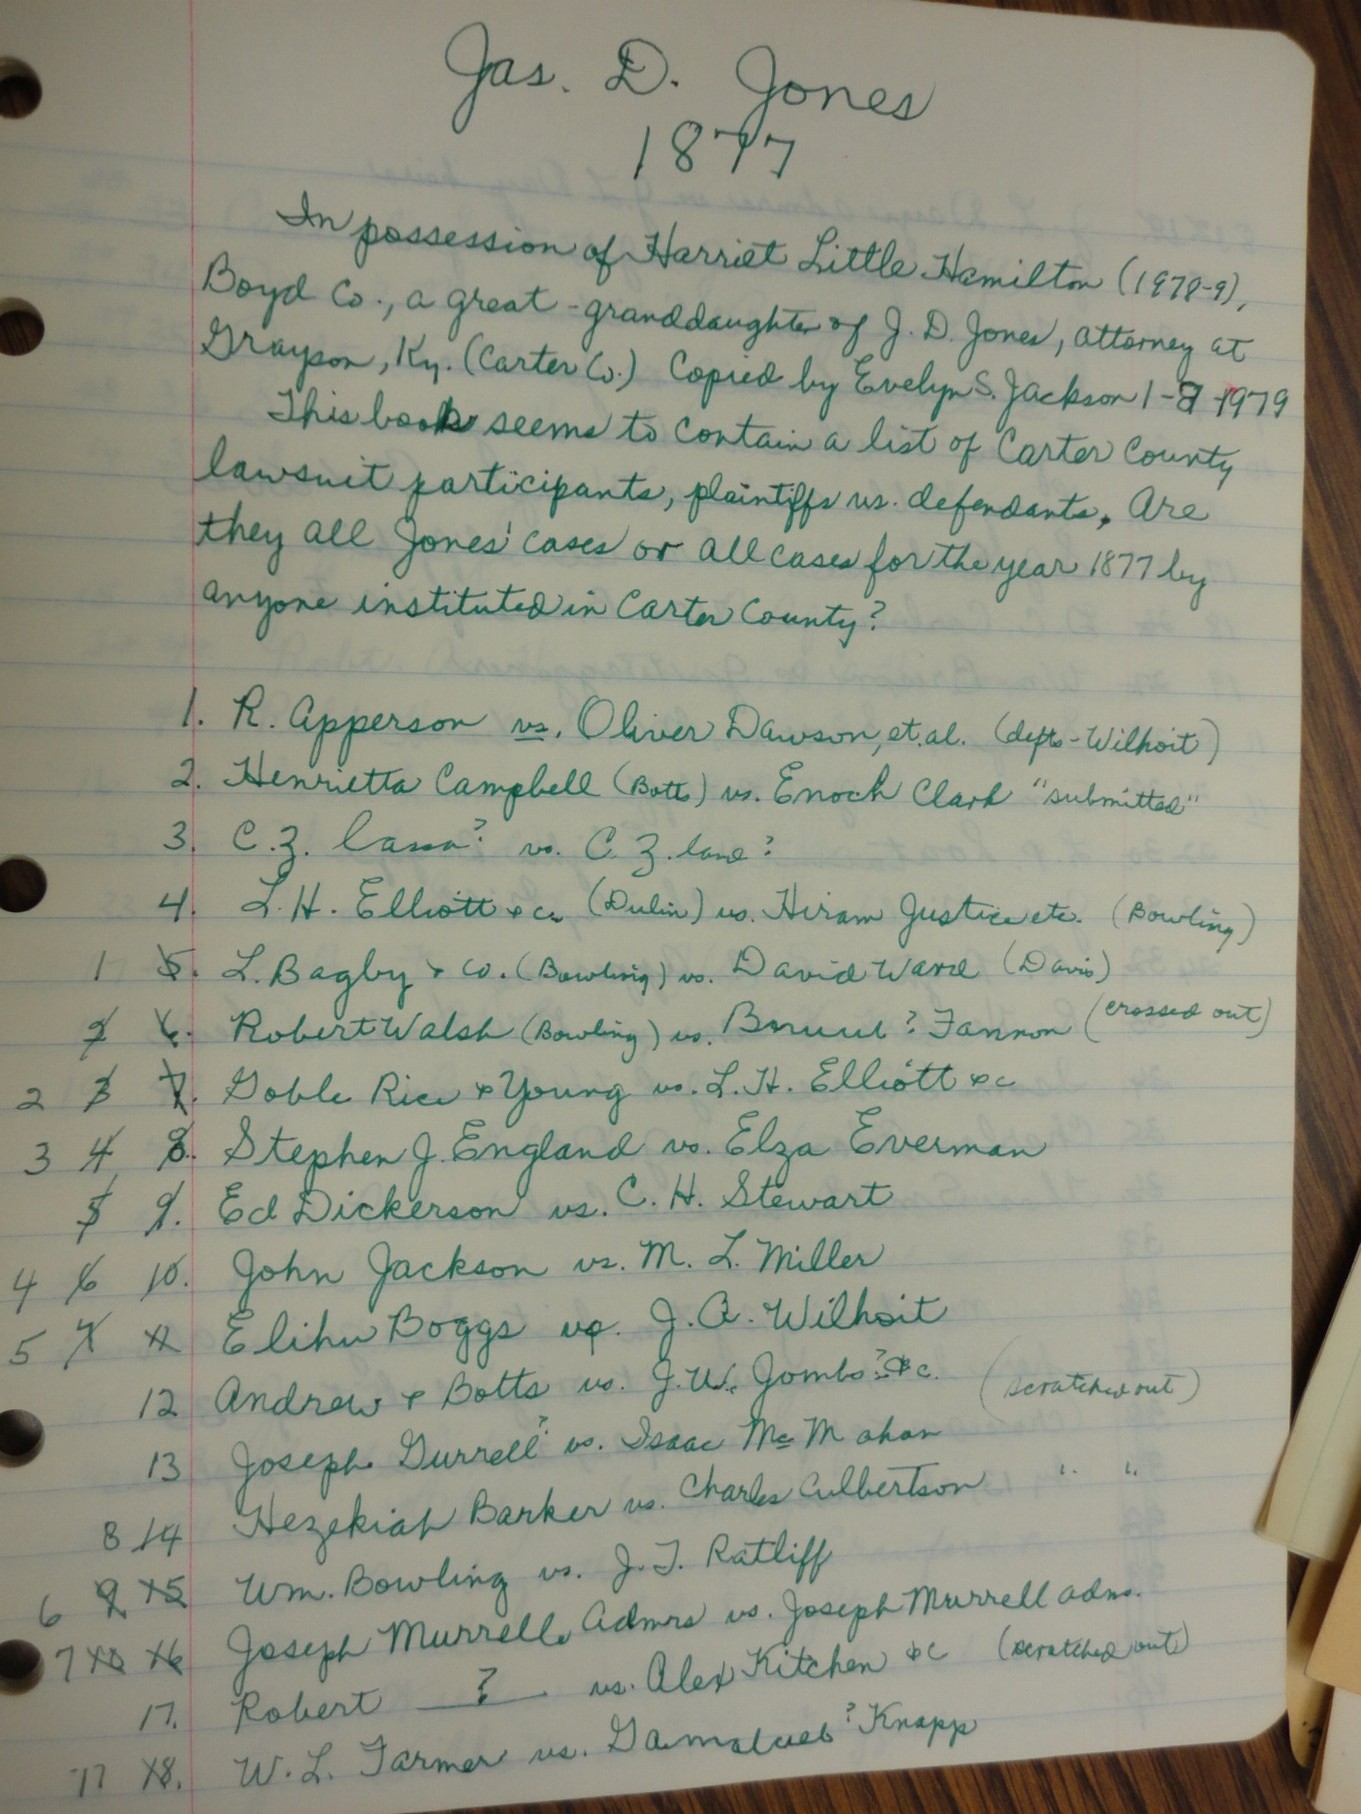 Jas. D. Jones
1877
In possession of Harriet Little Hamilton (1978-9),
Boyd Co., a great-granddaughter of J. D. Jones, attorney at
Grayson, Ky. (Carter Co.) Copied by Evelyn S. Jackson 1-8-1979
This book seems to contain a list of Carter County
lawsuit participants, plaintiffs vs. defendants. Are
they all Jones' cases or all cases for the year 1877 by
anyone instituted in Carter County?
1. R. Apperson vs. Oliver Dawson, et.al. (defts-Wilhoit)
2. Henrietta Campbell (Botts) vs. Enoch Clark "submitted"
3. C.Z. ? vs. C.Z. lane?
4. L.H. Elliott &c. (Dulin) vs. Hiram Justice etc. (Bowling)
1 5. L. Bagby & Co. (Bowling) vs. David Ward (Davis)
2 6. Robert Walsh (Bowling) vs. ? Fannon (crossed out)
2 3 7. Goble Rice & Young vs. L.H. Elliott &c
3 4 8. Stephen J. England vs. Elza Everman
5 9. Ed Dickerson vs. C. H. Stewart
4 6 10. John Jackson vs. M. L. Miller
5 7 11 Elihu Boggs vs. J.A. Wilhoit
12 Andrew & Botts vs. J.W. Jombs? &c. (scratched out)
13 Joseph Gurrell? vs. Isaac McMahan
8 14 Hezekiah Barker vs. Charles Culbertson " "
6 9 15 Wm. Bowling vs. J.T. Ratliff
7 10 16 Joseph Murrell Admrs vs. Joseph Murrell adms.
17. Robert ? vs. Alex Kitchen &c (scratched out)
11 18. W.L. Farmer vs. ? Knapp